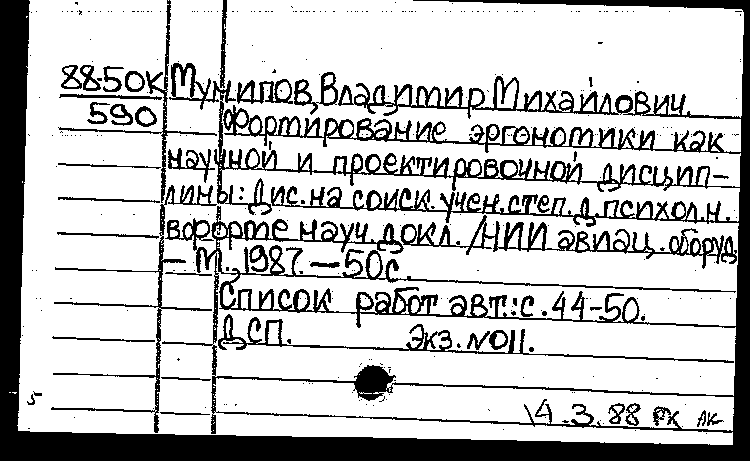 88-50К Мунипов, Владимир Михайлович.
590 Формирование эргономики как
научной и проектировочной дисцип-
лины: Дис. на соиск. учен. степ. д.психол.н.
в форме науч. докл. /НИИ авиац. оборуд
– М., 1987. – 50 с.
Список работ авт.: с. 44-50.
ДСП. Экз. №11.
5
14.3.88 РК АК